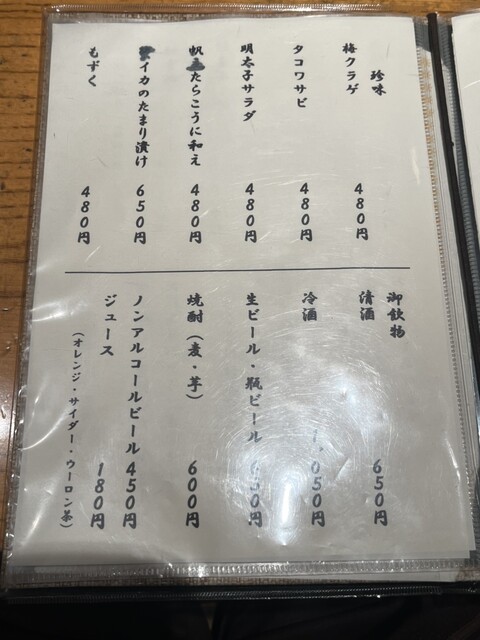 珍味
梅クラゲ 480円
タコワサビ 480円
明太子サラダ 480円
たらこうに和え 480円
イカのたまり漬け 650円
もずく 480円
御飲物
清酒 650円
冷酒 050円
生ビール・瓶ビール 650円
焼酎（麦・芋） 600円
ノンアルコールビール 450円
ジュース 180円
（オレンジ・サイダー・ウーロン茶）